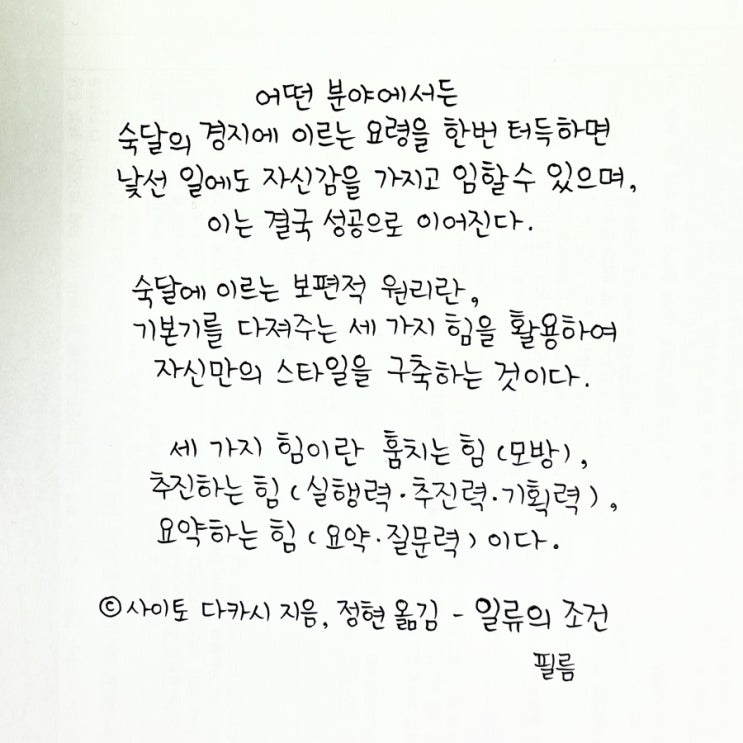 어떤 분야에서든
숙달의 경지에 이르는 요령을 한번 터득하면
낯선 일에도 자신감을 가지고 임할 수 있으며,
이는 결국 성공으로 이어진다.
숙달에 이르는 보편적 원리란,
기본기를 다져주는 세 가지 힘을 활용하여
자신만의 스타일을 구축하는 것이다.
세 가지 힘이란 훔치는 힘 (모방),
추진하는 힘 (실행력·추진력·기획력),
요약하는 힘 (요약·질문력) 이다.
©사이토 다카시 지음, 정현 옮김 - 일류의 조건
필름